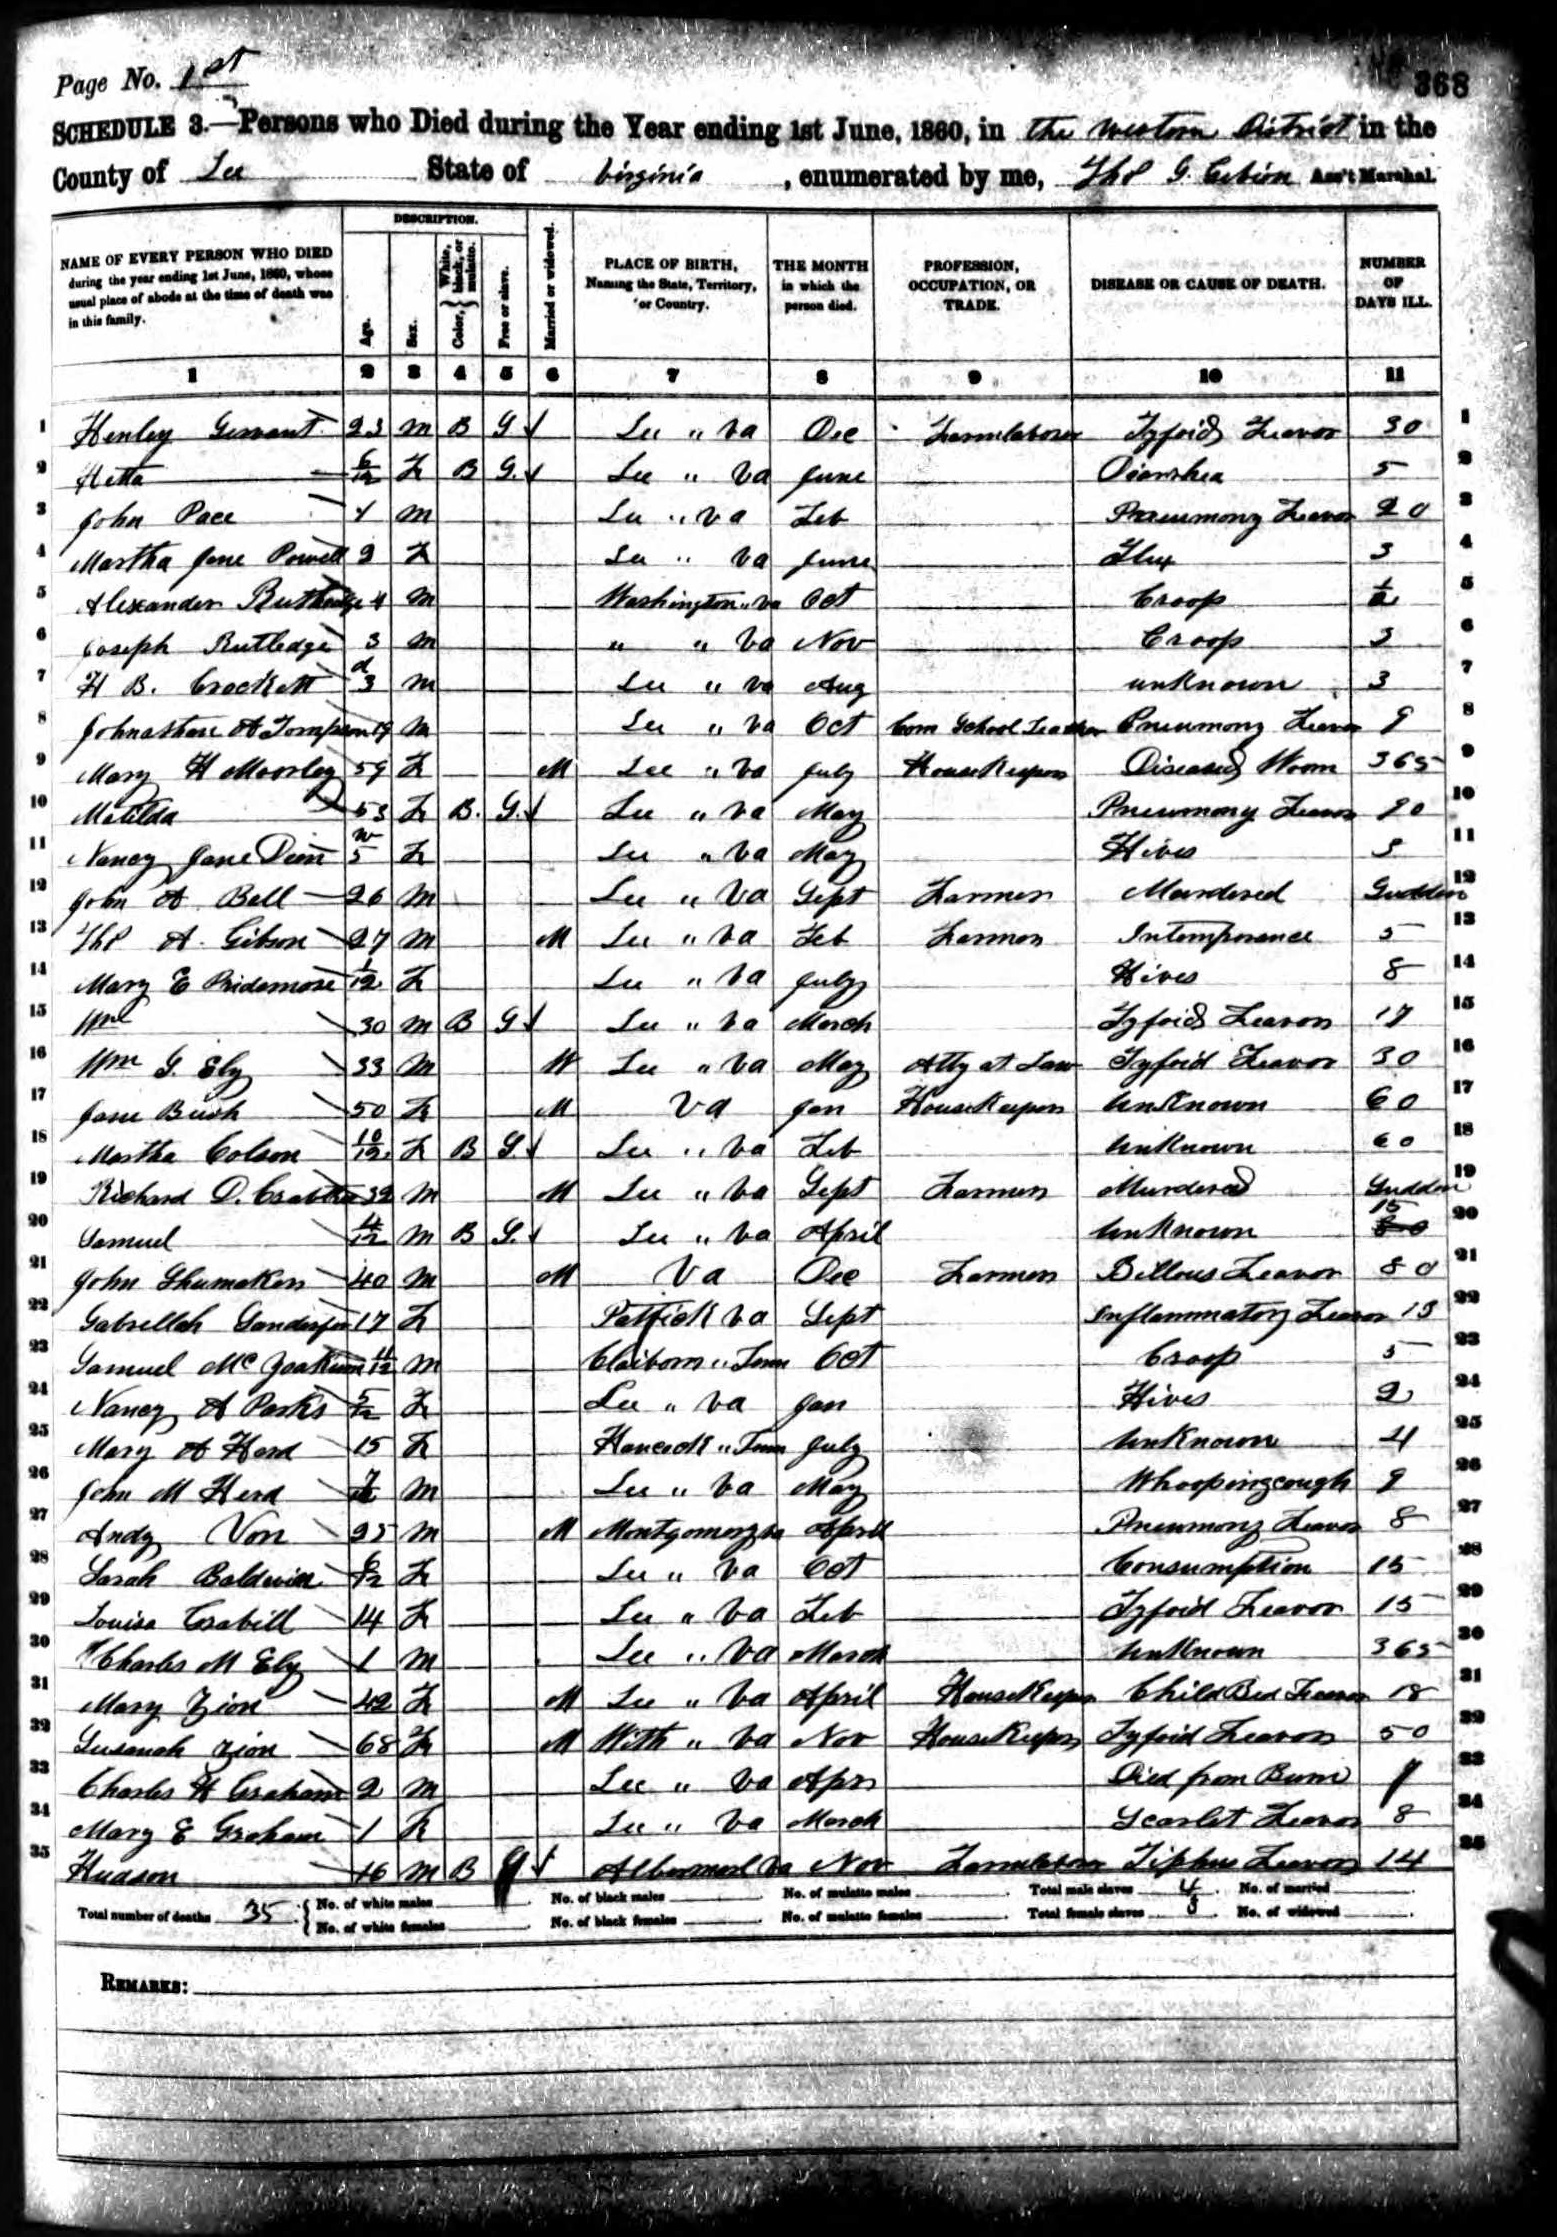 Page No. 1st
368
SCHEDULE 3.—Persons who Died during the Year ending 1st June, 1860, in the Western District in the
County of Lee State of Virginia, enumerated by me, Thos G. Ass't Marshal.
DESCRIPTION.
NAME OF EVERY PERSON WHO DIED during the year ending 1st June, 1860, whose usual place of abode at the time of death was in this family. Age. Sex. Color, { White, black, or mulatto. Free or slave. Married or widowed. PLACE OF BIRTH, Naming the State, Territory, or Country. THE MONTH in which the person died. PROFESSION, OCCUPATION, OR TRADE. DISEASE OR CAUSE OF DEATH. NUMBER OF DAYS ILL.
1 2 3 4 5 6 7 8 9 10 11
1 Henley Servant 23 m B S Lee " Va Dec Farmlaborer Tyfoid Feavor 30 1
2 Hetta 6/12 F B S. Lee " Va June Diarrhea 5 2
3 John Pace 1 m Lee " Va Feb Pneumony Feavor 20 3
4 Martha Jane Powell 2 F Lee " Va June Flux 3 4
5 Alexander Rutledge 4 m Washington " Va Oct Croop 1/2 5
6 Joseph Rutledge 3 m " " Va Nov Croop 3 6
7 H B. Crockett d 3 m Lee " Va Aug unKnown 3 7
8 Johnathan A Tompson 19 m Lee " Va Oct Com School Teacher Pneumony Feavor 9 8
9 Mary H 59 F M Lee " Va July HouseKeeper Diseased Woom 365 9
10 Matilda 53 F B. S. Lee " Va May Pneumony Feavor 90 10
11 Nancy Jane w 5 F Lee " Va May Hives 3 11
12 John A Bell 26 m Lee " Va Sept Farmer Murdered Sudden 12
13 Thos A. Gibson 27 m M Lee " Va Feb Farmer Intemperance 5 13
14 Mary E Pridemore 1/12 F Lee " Va July Hives 8 14
15 Wm 30 m B S Lee " Va March Tyfoid Feavor 17 15
16 Wm G. Ely 33 m W Lee " Va May Atty at Law Tyfoid Feavor 30 16
17 Jane Bush 50 F M Va Jan HouseKeeper UnKnown 60 17
18 Martha Colson 10/12 F B S. Lee " Va Feb UnKnown 60 18
19 Richard D. Crabtree 32 m M Lee " Va Sept Farmer Murdered Sudden 19
20 Samuel 4/12 m B S. Lee " Va April UnKnown 15 20
21 John Shumaker 40 m M Va Dec Farmer Billous Feavor 80 21
22 Gabrellah 17 F Patrick Va Sept Inflammatory Feavor 13 22
23 Samuel Mc Yoakum 11/12 m Claiborn " Tenn Oct Croop 5 23
24 Nancy A Parks 5/12 F Lee " Va Jan Hives 2 24
25 Mary A Herd 15 F Hancock " Tenn July UnKnown 4 25
26 John M Herd 7/12 m Lee " Va May Whoopingcough 9 26
27 Andy Von 25 m M Montgomery Va April Pneumony Feavor 8 27
28 Sarah Baldwin 6/12 F Lee " Va Oct Consumption 15 28
29 Louisa Crabill 14 F Lee " Va Feb Tyfoid Feavor 15 29
30 Charles M Ely 1 m Lee " Va March UnKnown 365 30
31 Mary Zion 42 F M Lee " Va April HouseKeeper Child Bed Feavor 18 31
32 Susanah Zion 68 F M With " Va Nov HouseKeeper Tyfoid Feavor 50 32
33 Charles H Graham 2 m Lee " Va Apr Died from Burn 9 33
34 Mary E Graham 1 F Lee " Va March Scarlet Feavor 8 34
35 Hudson 16 m B S Albermarl Va Nov Farmlaborer Tiphus Feavor 14 35
Total number of deaths 35 { No. of white males No. of black males No. of mulatto males Total male slaves 4 No. of married
No. of white females No. of black females No. of mulatto females Total female slaves 3 No. of widowed
REMARKS: